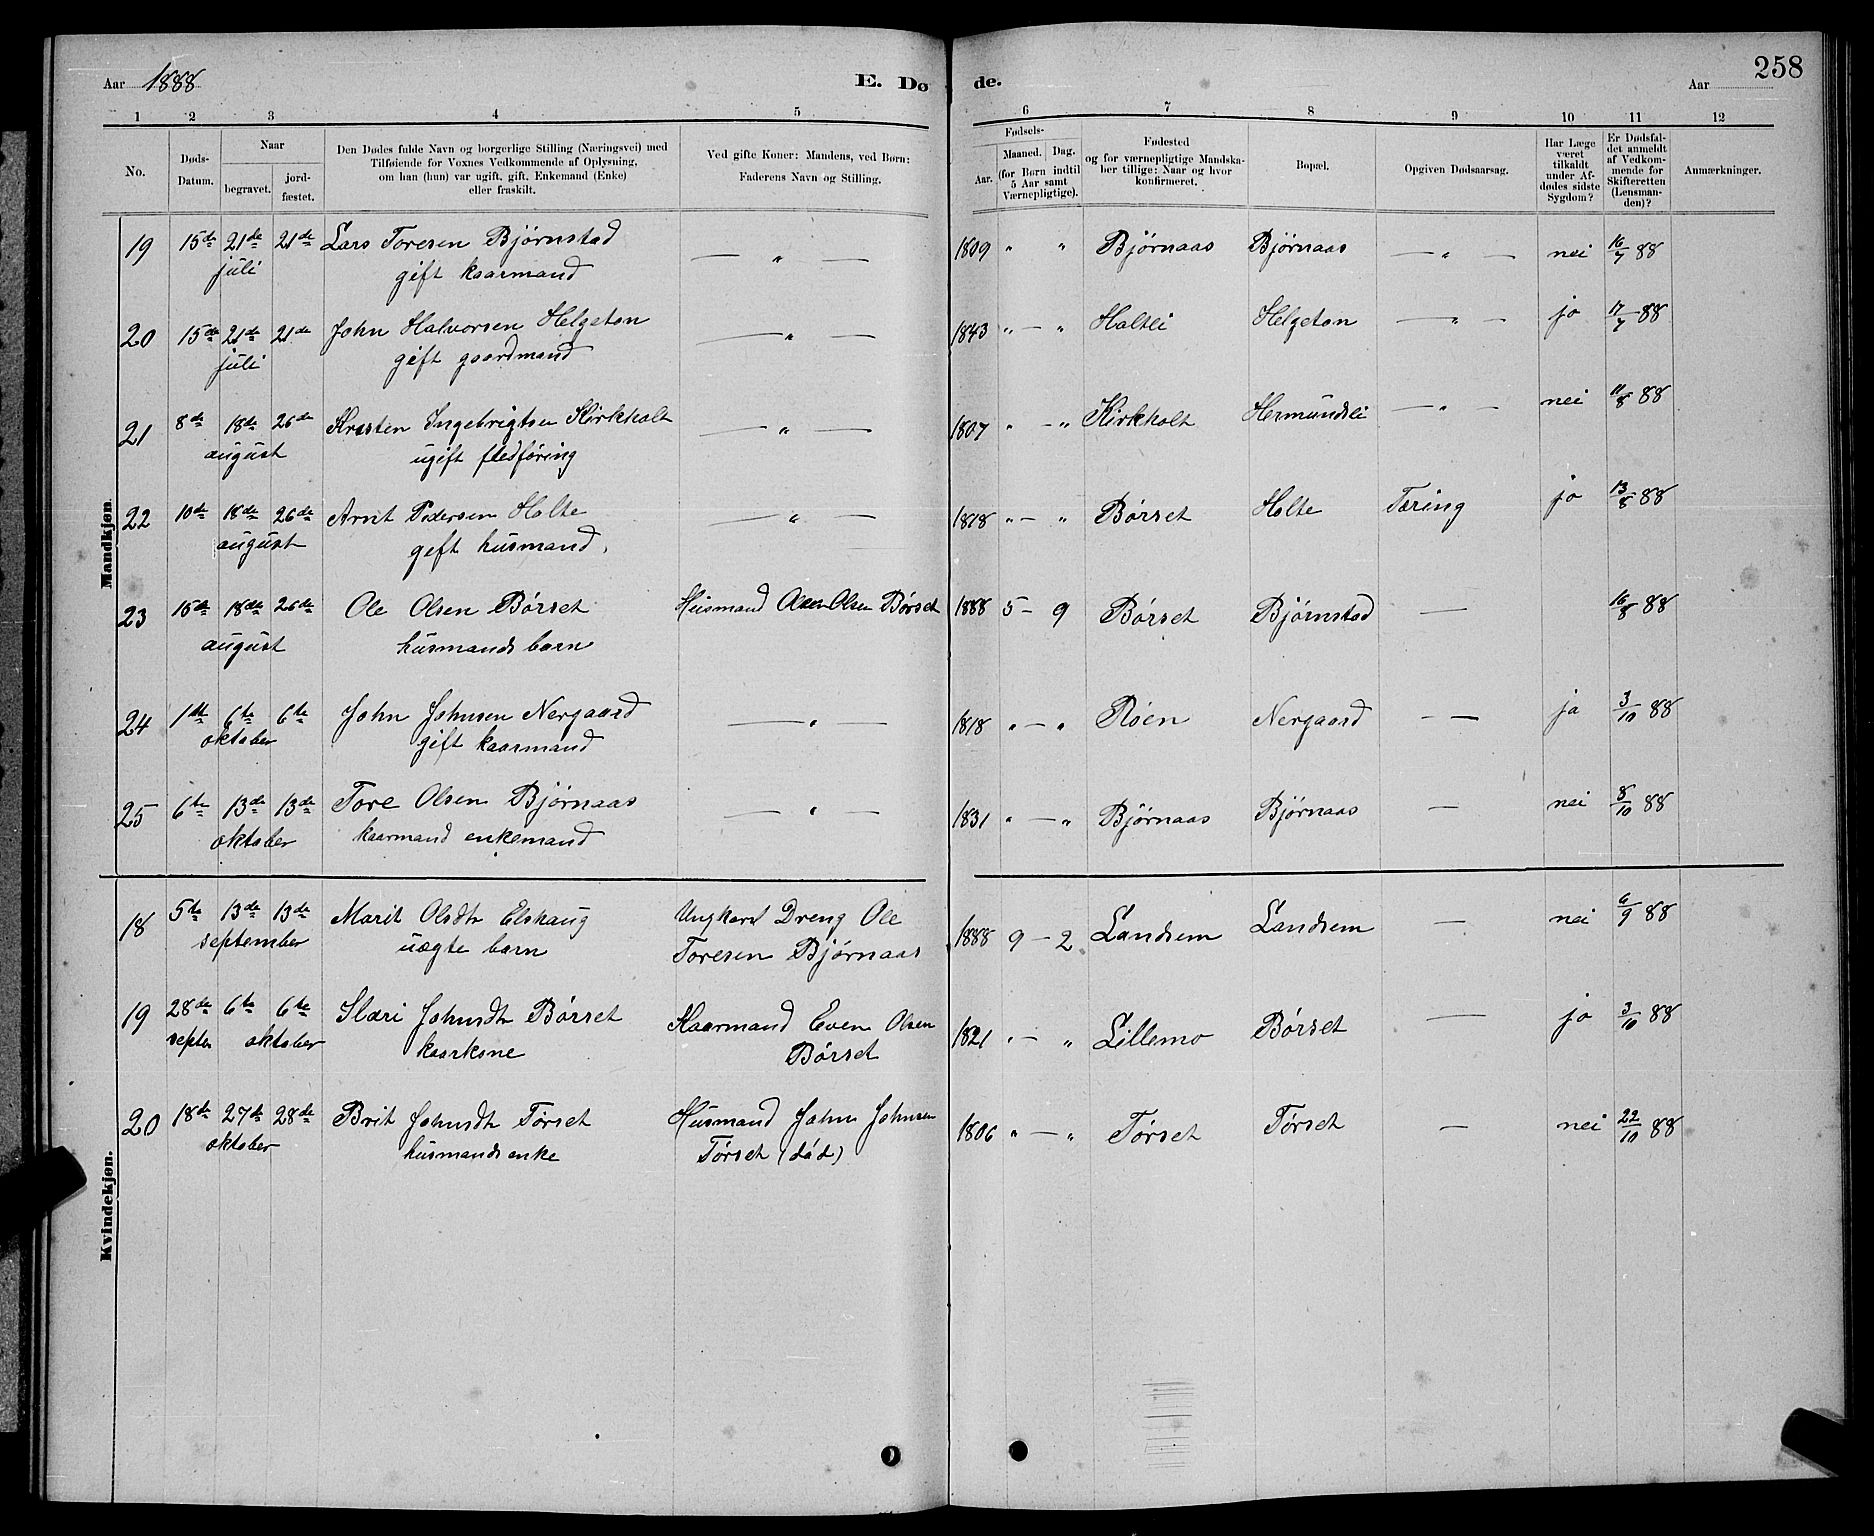 Aar 1888 E. Døde. Aar 258
1 2 3 4 5 6 7 8 9 10 11 12
No. Døds-Datum. Naar begravet. jordfæstet. Den Dødes fulde Navn og borgerlige Stilling (Næringsvei) med Tilføiende for Voxnes Vedkommende af Oplysning, om han (hun) var ugift, gift, Enkemand (Enke) eller fraskilt. Ved gifte Koner: Mandens, ved Børn: Faderens Navn og Stilling. Fødsels- Aar. Maaned. Dag. (for Børn indtil 5 Aar samt Værnepligtige). Fødested og for værnepligtige Mandskaber tillige: Naar og hvor konfirmeret. Bopæl. Opgiven Dødsaarsag. Har Læge været tilkaldt under Afdødes sidste Sygdom? Er Dødsfaldet anmeldt af Vedkommende for Skifteretten (Lensmanden)? Anmærkninger.
Mandkjøn.
19 15de 21de 21de Lars Toresen Bjørnstad — " — 1809 " " Bjørnaas Bjørnaas — " — nei 16/7 88
juli gift kaarmand
20 15de 21de 21de John Halvorsen Helgeton — " — 1843 " — " Haltli Helgeton — " — ja 17/7 88
juli gift gaardmand
21 8de 18de 26de Kristen Ingebrigtsen Kirkholt — " — 1807 " — " Kirkholt Hermundsli — " — nei 11/8 88
august ugift fledføring
22 10de 18de 26de Arnt Pedersen Holte — " — 1818 " — " Børset Holte Tæring ja 13/8 88
august gift husmand.
23 15de 18de 26de Ole Olsen Børset Husmand Olsen Børset 1888 5 — 9 Børset Bjørnstad — 16/8 88
august husmands barn
24 1ste 6te 6te John Johnsen Nergaard — " — 1818 " — " Røen Nergaard — ja 3/10 88
oktober gift kaarmand
25 6te 13de 13de Tore Olsen Bjørnaas — " — 1831 " — " Bjørnaas Bjørnaas — nei 8/10 88
oktober kaarmand enkemand
Kvindekjøn.
18 5te 13de 13de Marit Olsdtr Elshaug Ungkarl Dreng Ole 1888 9 — 2 Landsem Landsem — nei 6/9 88
september uægte barn Toresen Bjørnaas
19 28de 6te 6te Johnsdtr Børset Kaarmand Even Olsen 1821 " — " Lillemo Børset — ja 3/10 88
septer oktober kaarkone Børset
20 18de 27de 28de Brit Johnsdtr Tørset Husmand John Johnsen 1806 " — " Tørset Tørset — nei 22/10 88
oktober husmands enke Tørset (død)